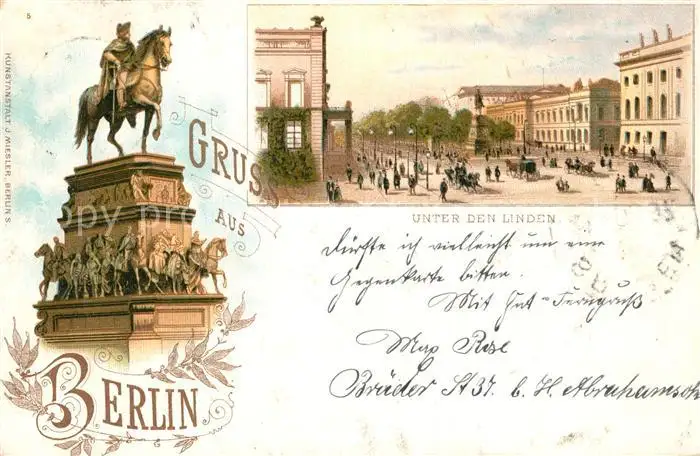 5
KUNSTANSTALT J. MIESLER, BERLIN S.
GRUSS
AUS
BERLIN
UNTER DEN LINDEN
Dürfte ich vielleicht um eine
Gegenkarte bitten.
Mit Gut-Ferngruß
Max Rose
Brüder St 37. b. H. Abrahamsohn